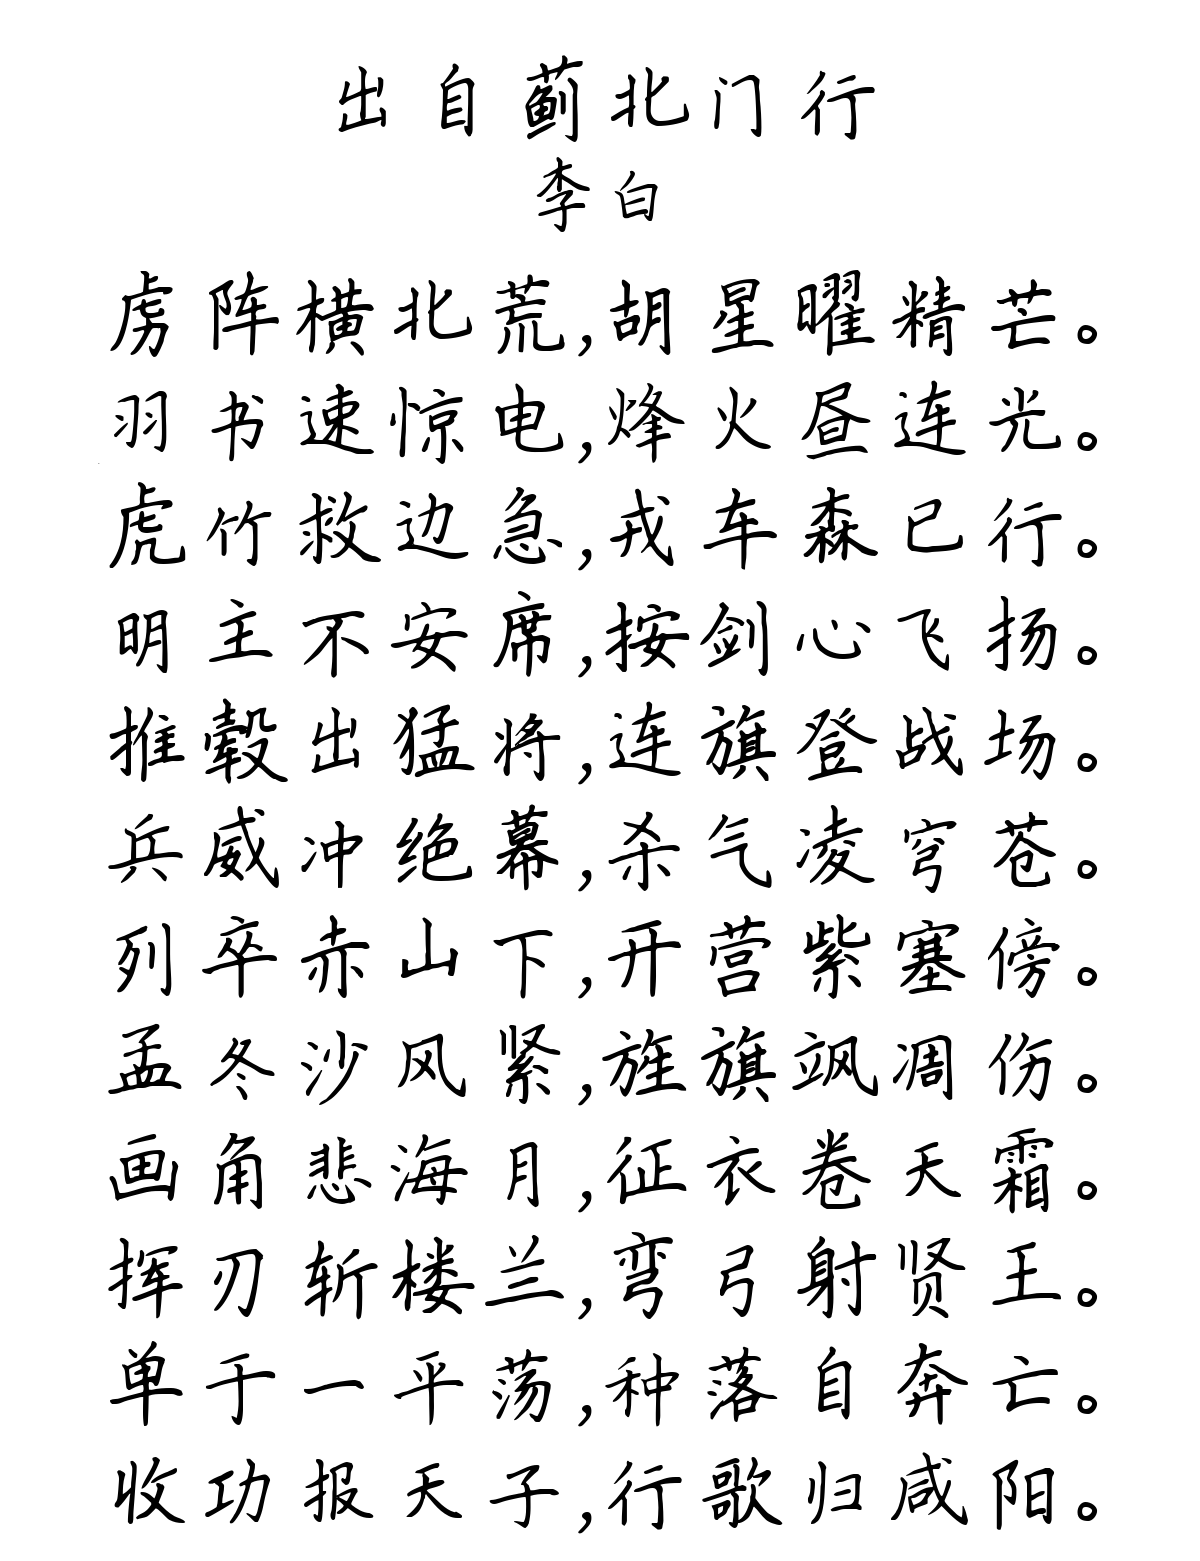 出自蓟北门行
李白
虏阵横北荒,胡星曜精芒。
羽书速惊电,烽火昼连光。
虎竹救边急,戎车森已行。
明主不安席,按剑心飞扬。
推毂出猛将,连旗登战场。
兵威冲绝幕,杀气凌穹苍。
列卒赤山下,开营紫塞傍。
孟冬沙风紧,旌旗飒凋伤。
画角悲海月,征衣卷天霜。
挥刃斩楼兰,弯弓射贤王。
单于一平荡,种落自奔亡。
收功报天子,行歌归咸阳。